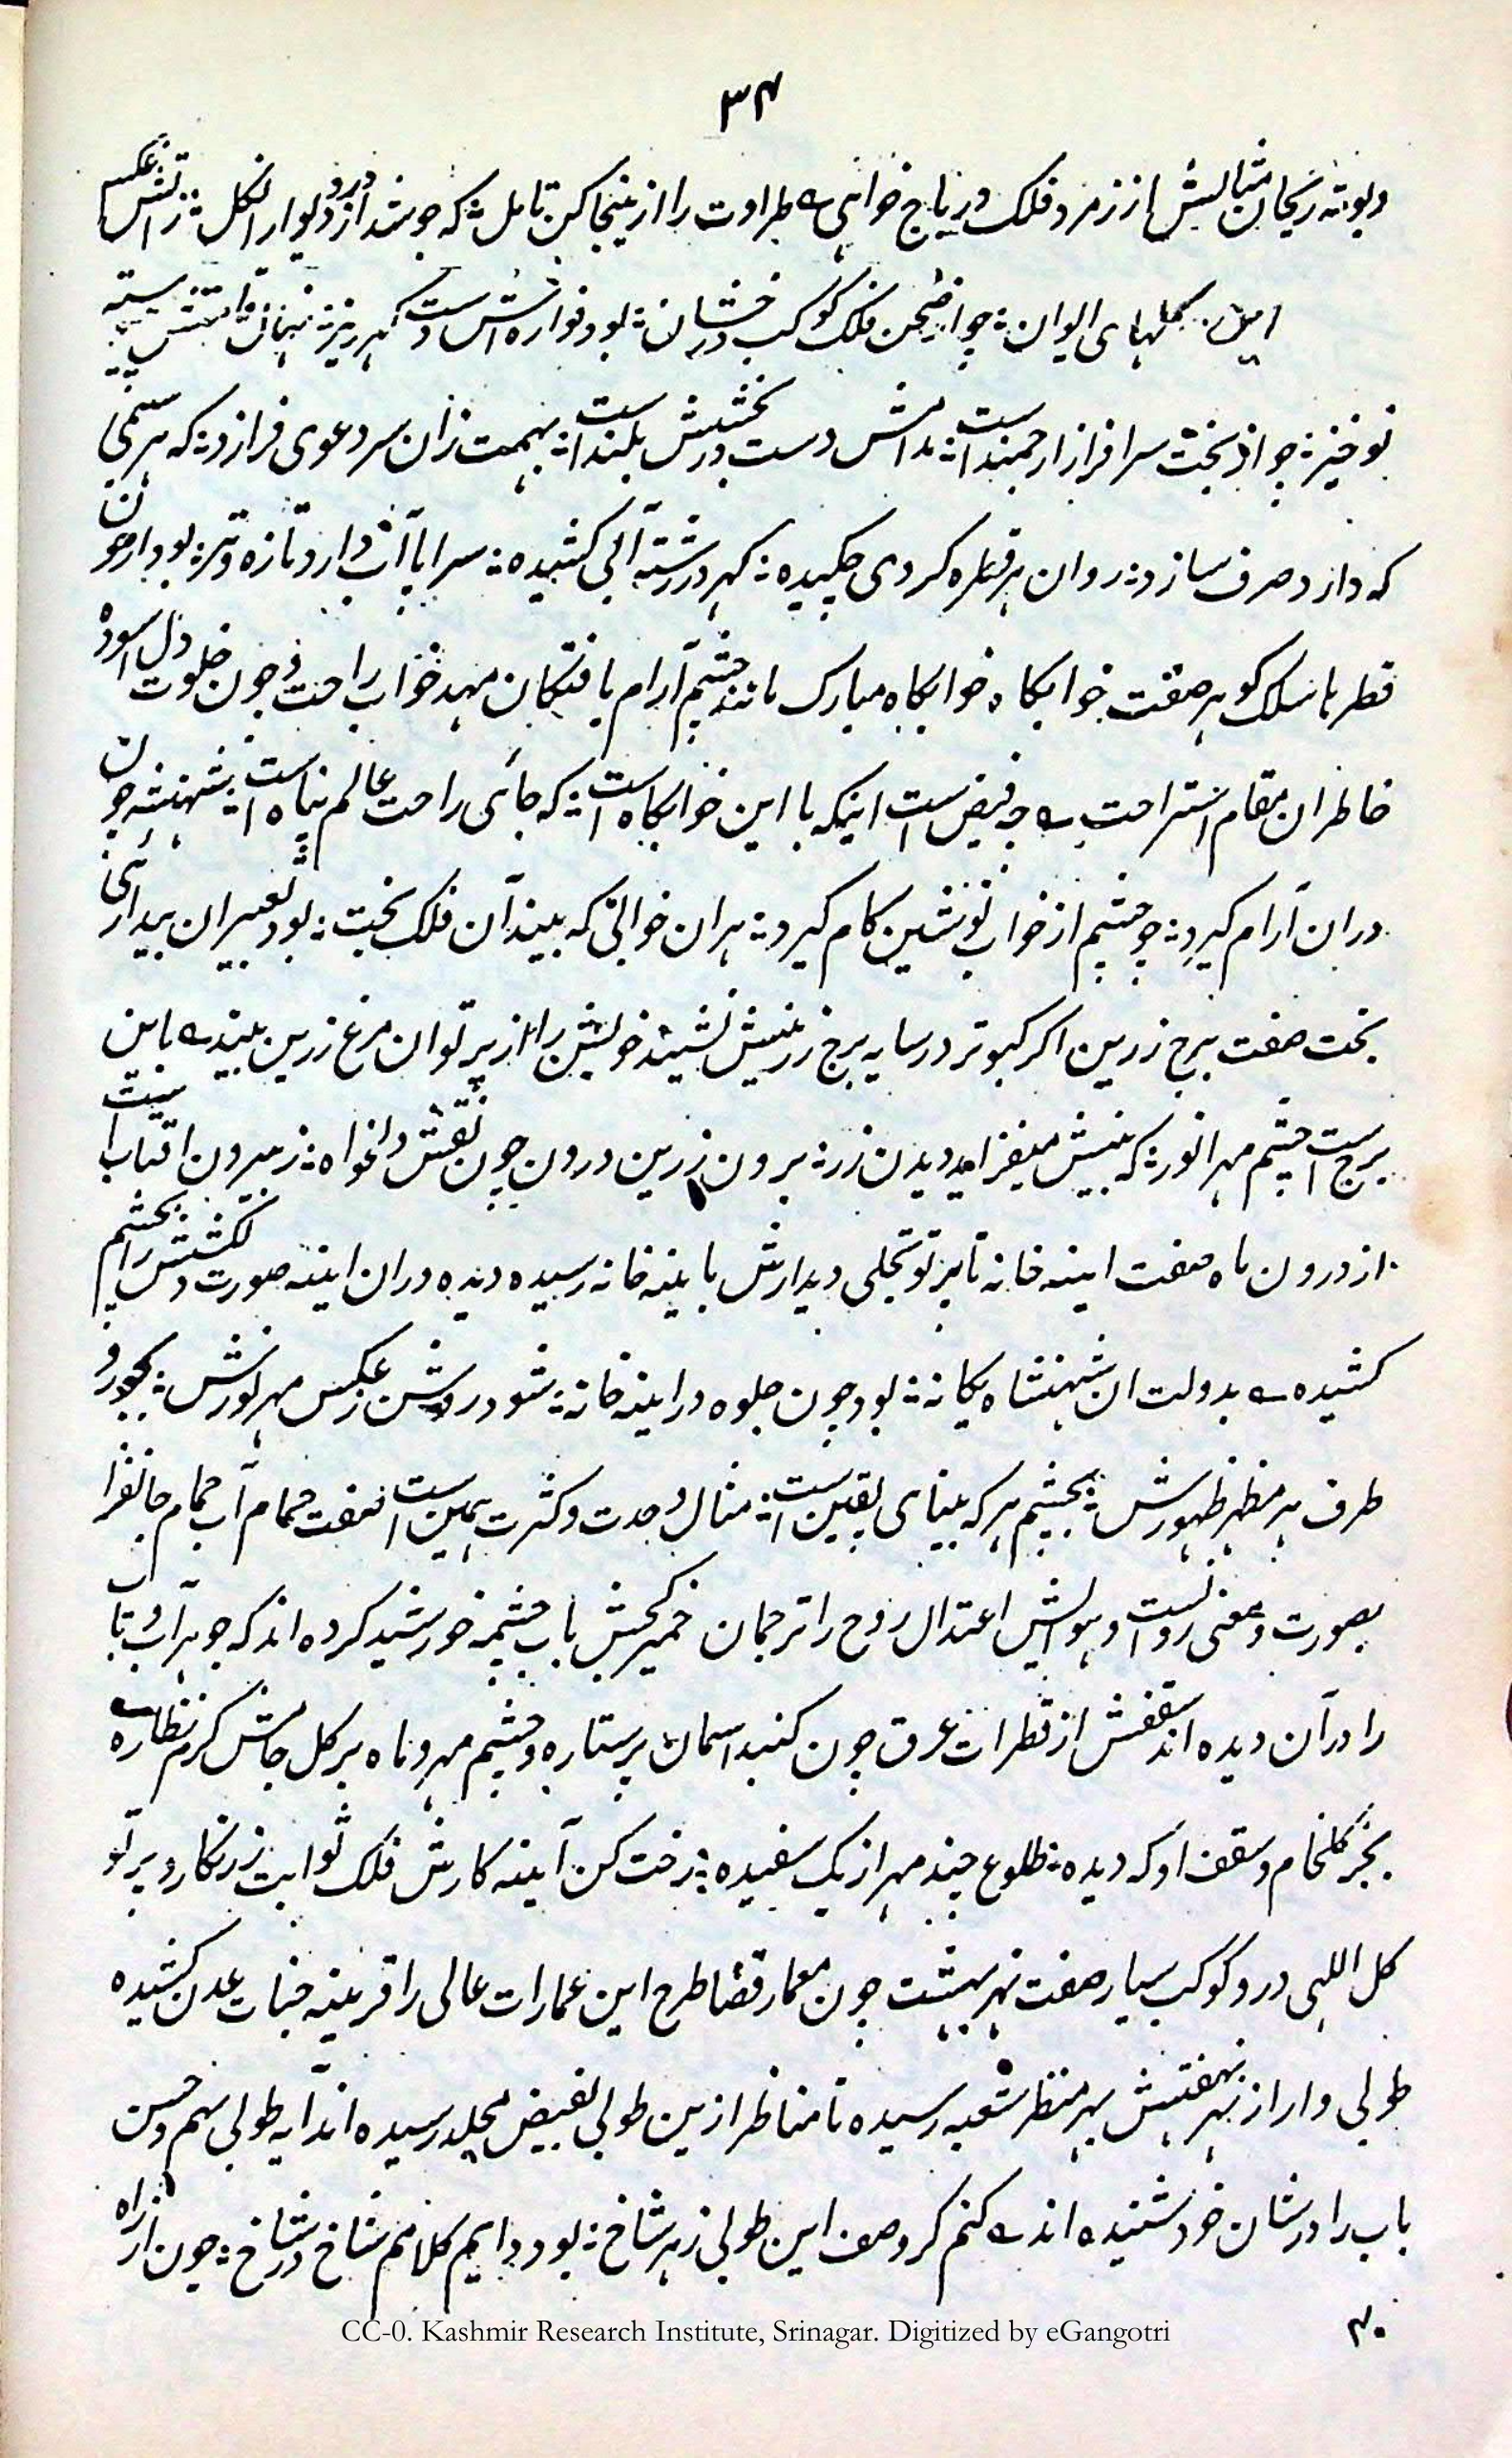 ۳۴
وبوته ریحان مثالیش از زمرد فلک در باج خواهی طراوت را ازینجا کن تامل که جوشد از در و دیوار او گل ز عکس آتش
این گلهای ایوان چو انجم فلک کوکب درخشان بود فواره اش دست گهر ریز
نوخیز چو از بخت سرافراز ارجمند است مدامش دست بخشش در بلند است بهمت زان سر دعوی فرازد که هر سیمی
که دارد صرف سازد روان هر قطره کز وی چکیده گهر در رشته آبی کشیده سراپا آب دارد تازه و تر بود دارم چون
قطرها سلک گوهر صفت خوابگاه خوابگاه مبارک مانند چشم آرام یافتگان مهد خواب راحت و چون خلوت دل آسوده
خاطران مقام استراحت چه فیض است اینکه با این خوابگاه است که جای راحت عالم پناه است شهنشه چون
دران آرام گیرد چو چشم از خواب نوشین کام گیرد هران خوابی که بیند آن فلک بخت بود تعبیر آن بیداری
بخت صفت برج زرین اگر کبوتر در سایه برج زرینش نشیند خویش را از پرتو آن مرغ زرین بیند باین
برج است چشم مهر انور که بینش میفزاید دیدن زر برون زرین درون چون نقش دلخواه ز بیرون آفتاب است
از درون ماه صفت اینه خانه تا پرتو تجلی دیدارش باینه خانه رسیده دیده دران اینه صورت دلکشش را بچشم
کشیده بدولت ان شهنشاه یگانه بود چون جلوه در اینه خانه شود روشن ز عکس مهر نورش بهر دو
طرف هر مظهر ظهورش بچشم هر که بینای یقین است مثال وحدت و کثرت همین است صفت حمام آب حمام جانفزا
بصورت و معنی روانست و هوایش اعتدال روح را ترجمان خمیر گچش باب چشمه خورشید کرده اند که جوهر آب و تاب
را در آن دیده اند سقفش از قطرات عرق چون گنبد اسمان پرستاره و چشم مهر و ماه بر گل جامش گرم نظاره
بجز گلجام و سقف او که دیده طلوع چند مهر از یک سفیده رخت کن آینه کارش فلک ثوابت زرنگار و پرتو
گل اللهی در و کوکب سیار صفت نهر بهشت چون معمار قضا طرح این عمارات عالی را قرینه جنات عدن کشیده
طوبی وار از نهر بهشتش بهر منظر شعبه رسیده تا مناظر ازین طوبی بفیض مخلد رسیده اند آیه طوبی لهم و حسن
باب را در شان خود شنیده اند کنم گر وصف این طوبی ز هر شاخ بود دایم کلامم شاخ در شاخ چون از راه
CC-0. Kashmir Research Institute, Srinagar. Digitized by eGangotri